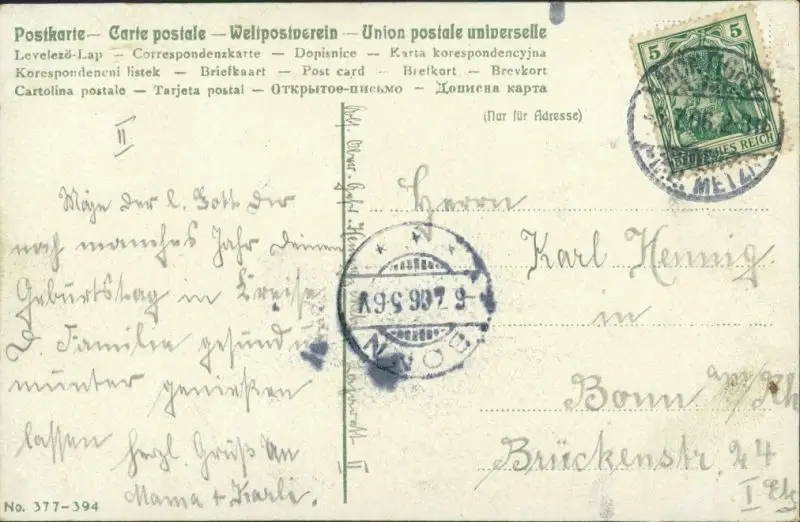 Postkarte — Carte postale — Weltpostverein — Union postale universelle
Levelező-Lap — Correspondenzkarte — Dopisnice — Karta korespondencyjna
Korespondencni listek — Briefkaart — Post card — Brefkort — Brevkort
Cartolina postale — Tarjeta postal — Открытое-письмо — Дописна карта
(Nur für Adresse)
5 5
DEUTSCHES REICH
METZ
II
Möge der l. Gott der
noch manches Jahr deinen
Geburtstag in Kreise
d. Familie gesund u
munter genießen
lassen herzl. Gruß an
Mama + Karli.
Herrn
Karl Hennig.
in
Bonn am Rh
Brückenstr. 24
I Etg
BONN
6.7.06 5-6V
No. 377-394